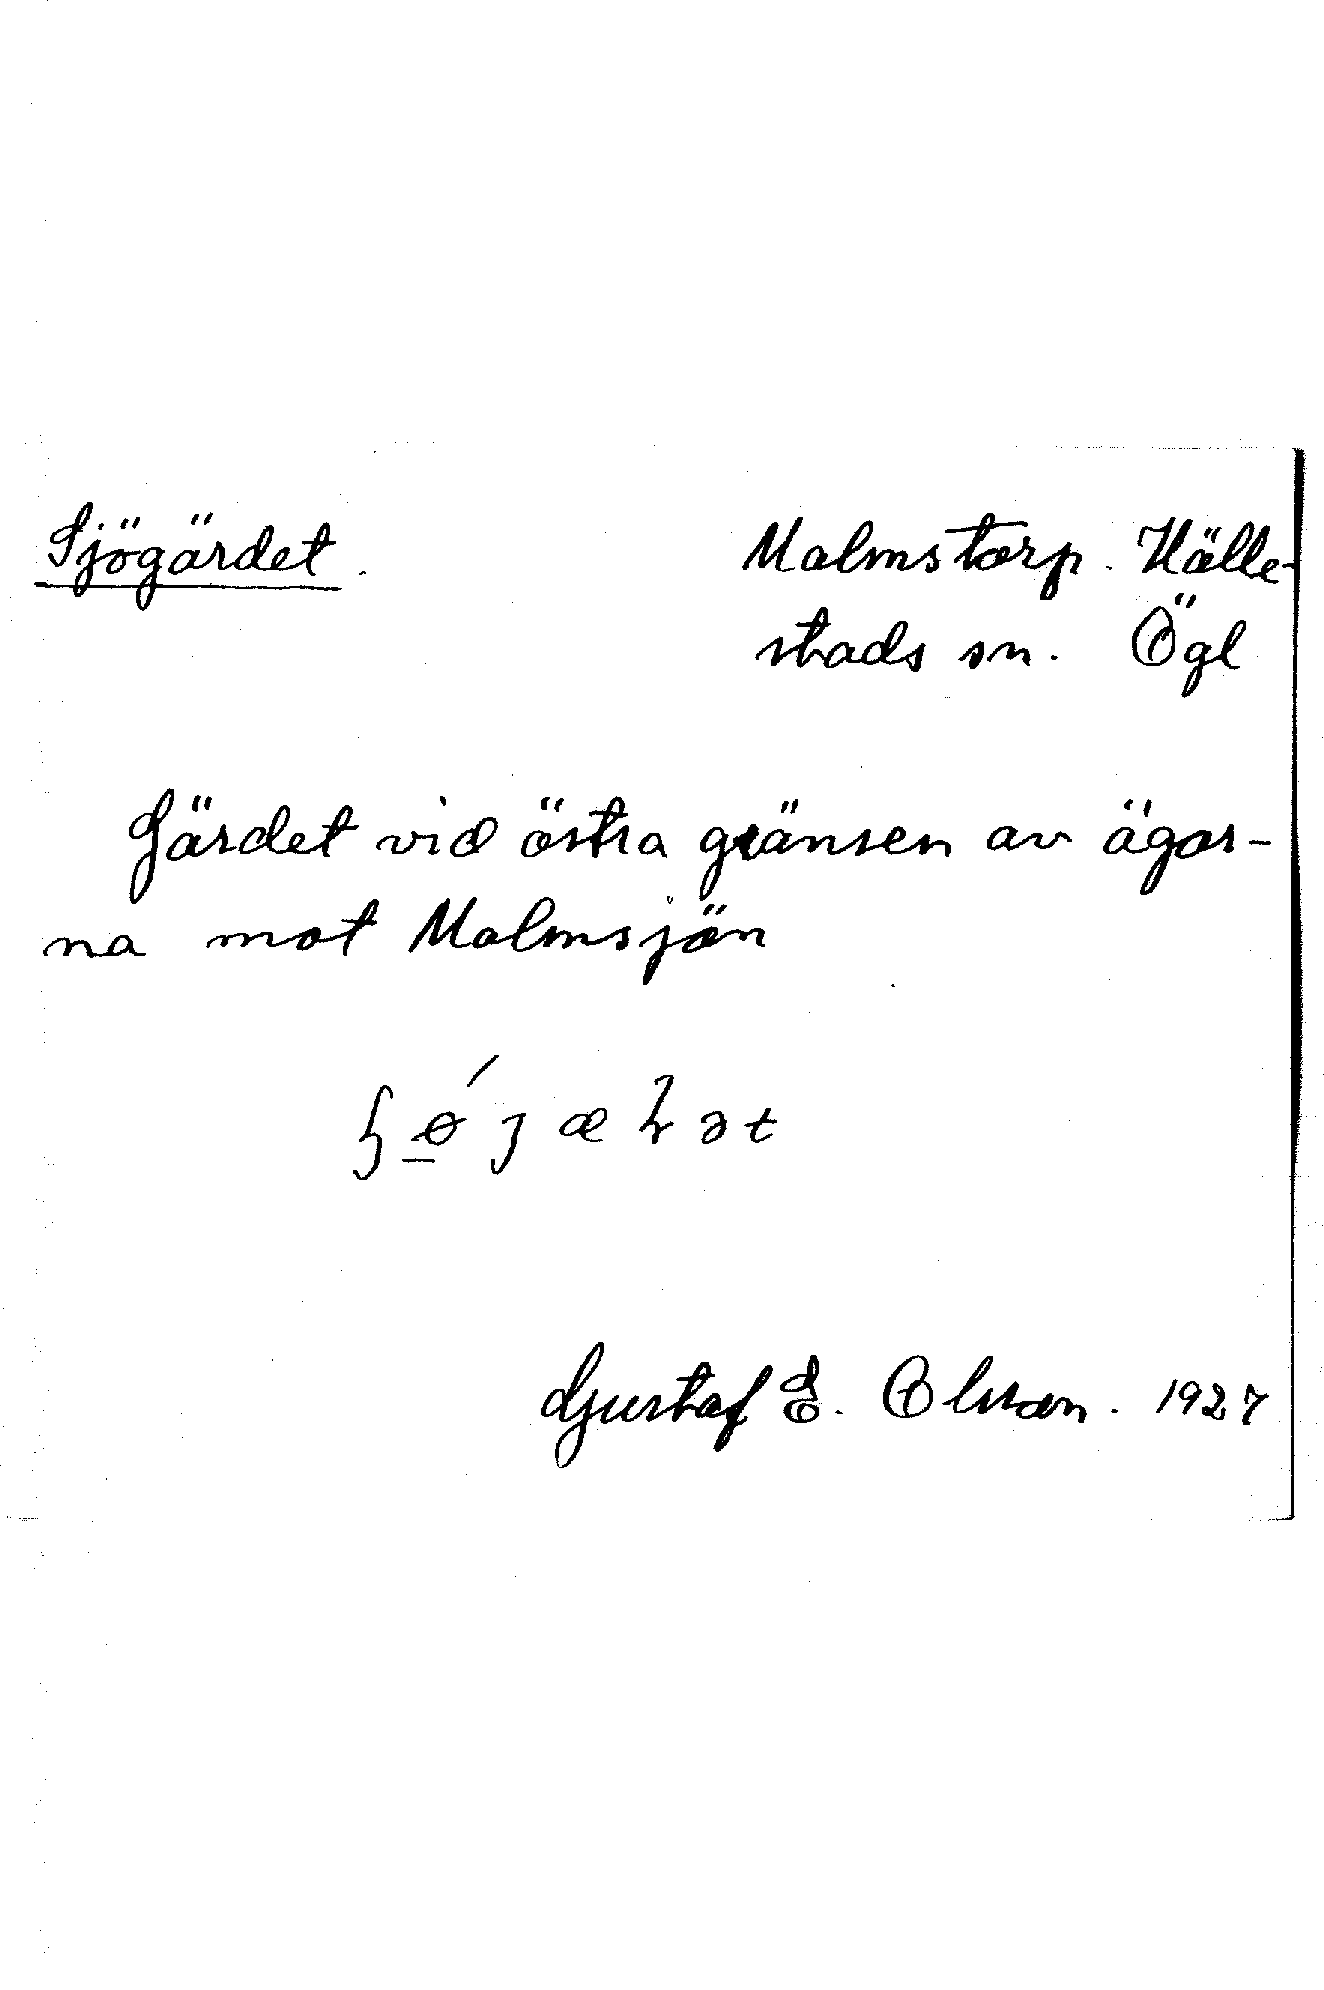 Sjögärdet.
Malmstorp. Hälle-
stads sn. Ögl
Gärdet vid östra gränsen av ägor-
na mot Malmsjön
Gustaf E. Olsson. 1927